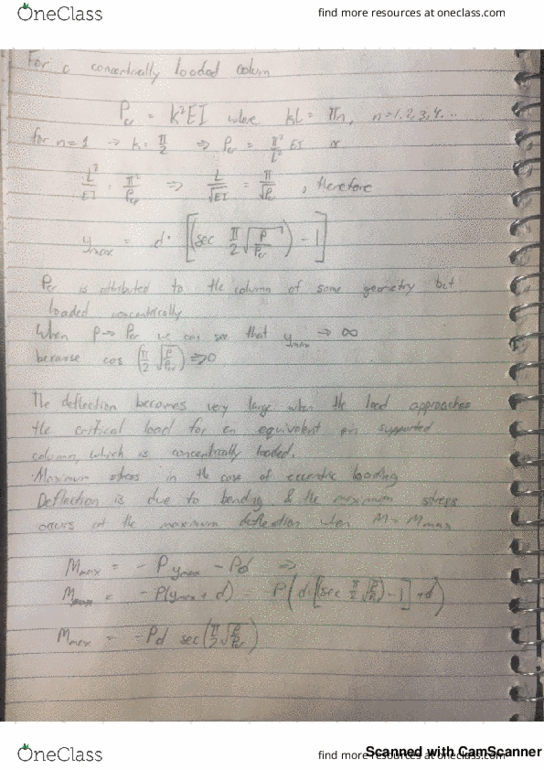 OneClass find more resources at oneclass.com
For a concentrically loaded column
Pcr = k²EI where kL = πn, n=1,2,3,4...
for n=1 → k = π/2 ⇒ Pcr = π²/L² EI or
L²/EI = π²/Pcr ⇒ L/√EI = π/√Pcr , therefore
ymax = d · [(sec π/2 √P/Pcr) - 1]
Pcr is attributed to the column of same geometry but
loaded concentrically
When P → Pcr we can see that ymax → ∞
because cos (π/2 √P/Pcr) ⇒ 0
The deflection becomes very large when the load approaches
the critical load for an equivalent pin supported
column, which is concentrically loaded.
Maximum stress in the case of eccentric loading
Deflection is due to bending & the maximum stress
occurs at the maximum deflection when M = Mmax
Mmax = - P ymax - Pd ⇒
Mmax = - P(ymax + d) - P(d · [(sec π/2 √P/Pcr) - 1] + d)
Mmax = - Pd sec(π/2 √P/Pcr)
Scanned with CamScanner
OneClass find more resources at oneclass.com